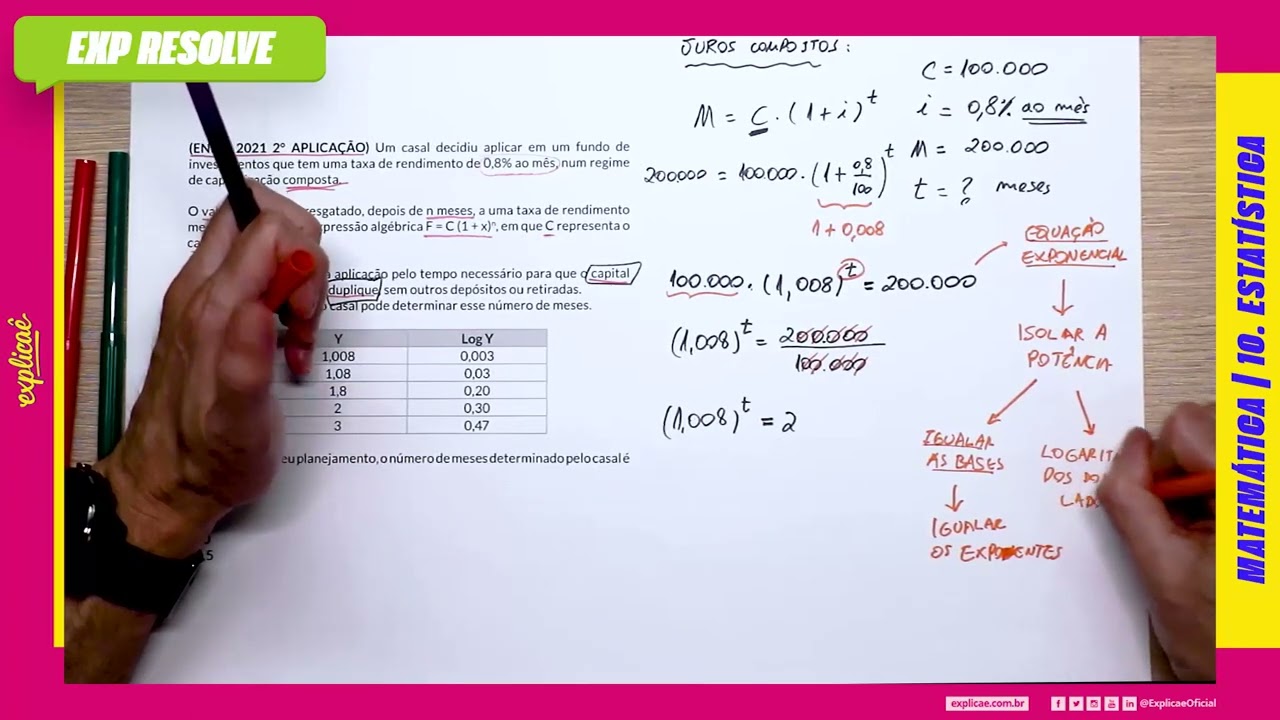 EXP RESOLVE
(EN 2021 2º APLICAÇÃO) Um casal decidiu aplicar em um fundo de
inves entos que tem uma taxa de rendimento de 0,8% ao mês, num regime
de cap ação composta.
O va esgatado, depois de n meses, a uma taxa de rendimento
me pressão algébrica F = C (1 + x)ⁿ, em que C representa o
ca
a aplicação pelo tempo necessário para que o capital
duplique, sem outros depósitos ou retiradas.
o casal pode determinar esse número de meses.
Y Log Y
1,008 0,003
1,08 0,03
1,8 0,20
2 0,30
3 0,47
eu planejamento, o número de meses determinado pelo casal é
5
JUROS COMPOSTOS:
M = C . (1 + i)^t
200.000 = 100.000 . (1 + 0,8/100)^t
1 + 0,008
100.000 . (1,008)^t = 200.000
(1,008)^t = 200.000/100.000
(1,008)^t = 2
C = 100.000
i = 0,8% ao mês
M = 200.000
t = ? meses
EQUAÇÃO
EXPONENCIAL
ISOLAR A
POTÊNCIA
IGUALAR
AS BASES
IGUALAR
OS EXPOENTES
LOGARIT
DOS DO
LAD
explicaê
MATEMÁTICA | 10. ESTATÍSTICA
explicae.com.br
@ExplicaeOficial